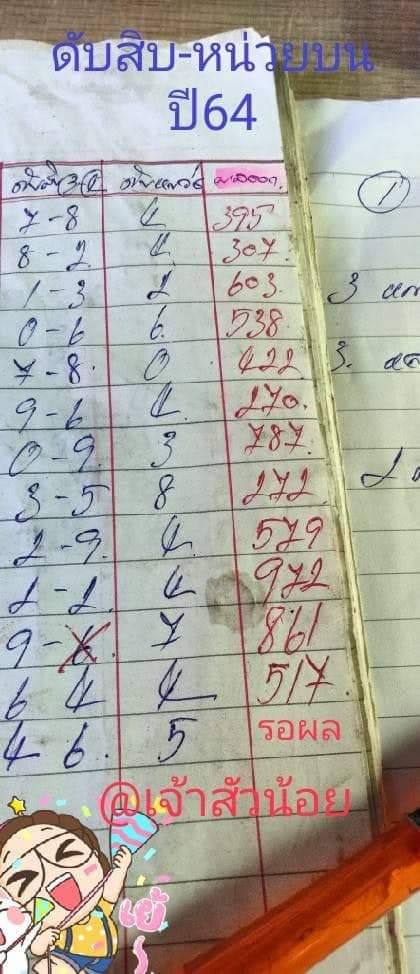 ดับสิบ-หน่วยบน
ปี64
7-8 4 395
8-2 4 307
1-3 2 603
0-6 6 538
7-8 0 422
9-6 4 270
0-9 3 787
3-5 8 272
2-9 4 579
2-2 4 972
9-6 7 861
6 4 4 517
4 6 5 รอผล
@เจ้าสัวน้อย
เย้
1
3
3.